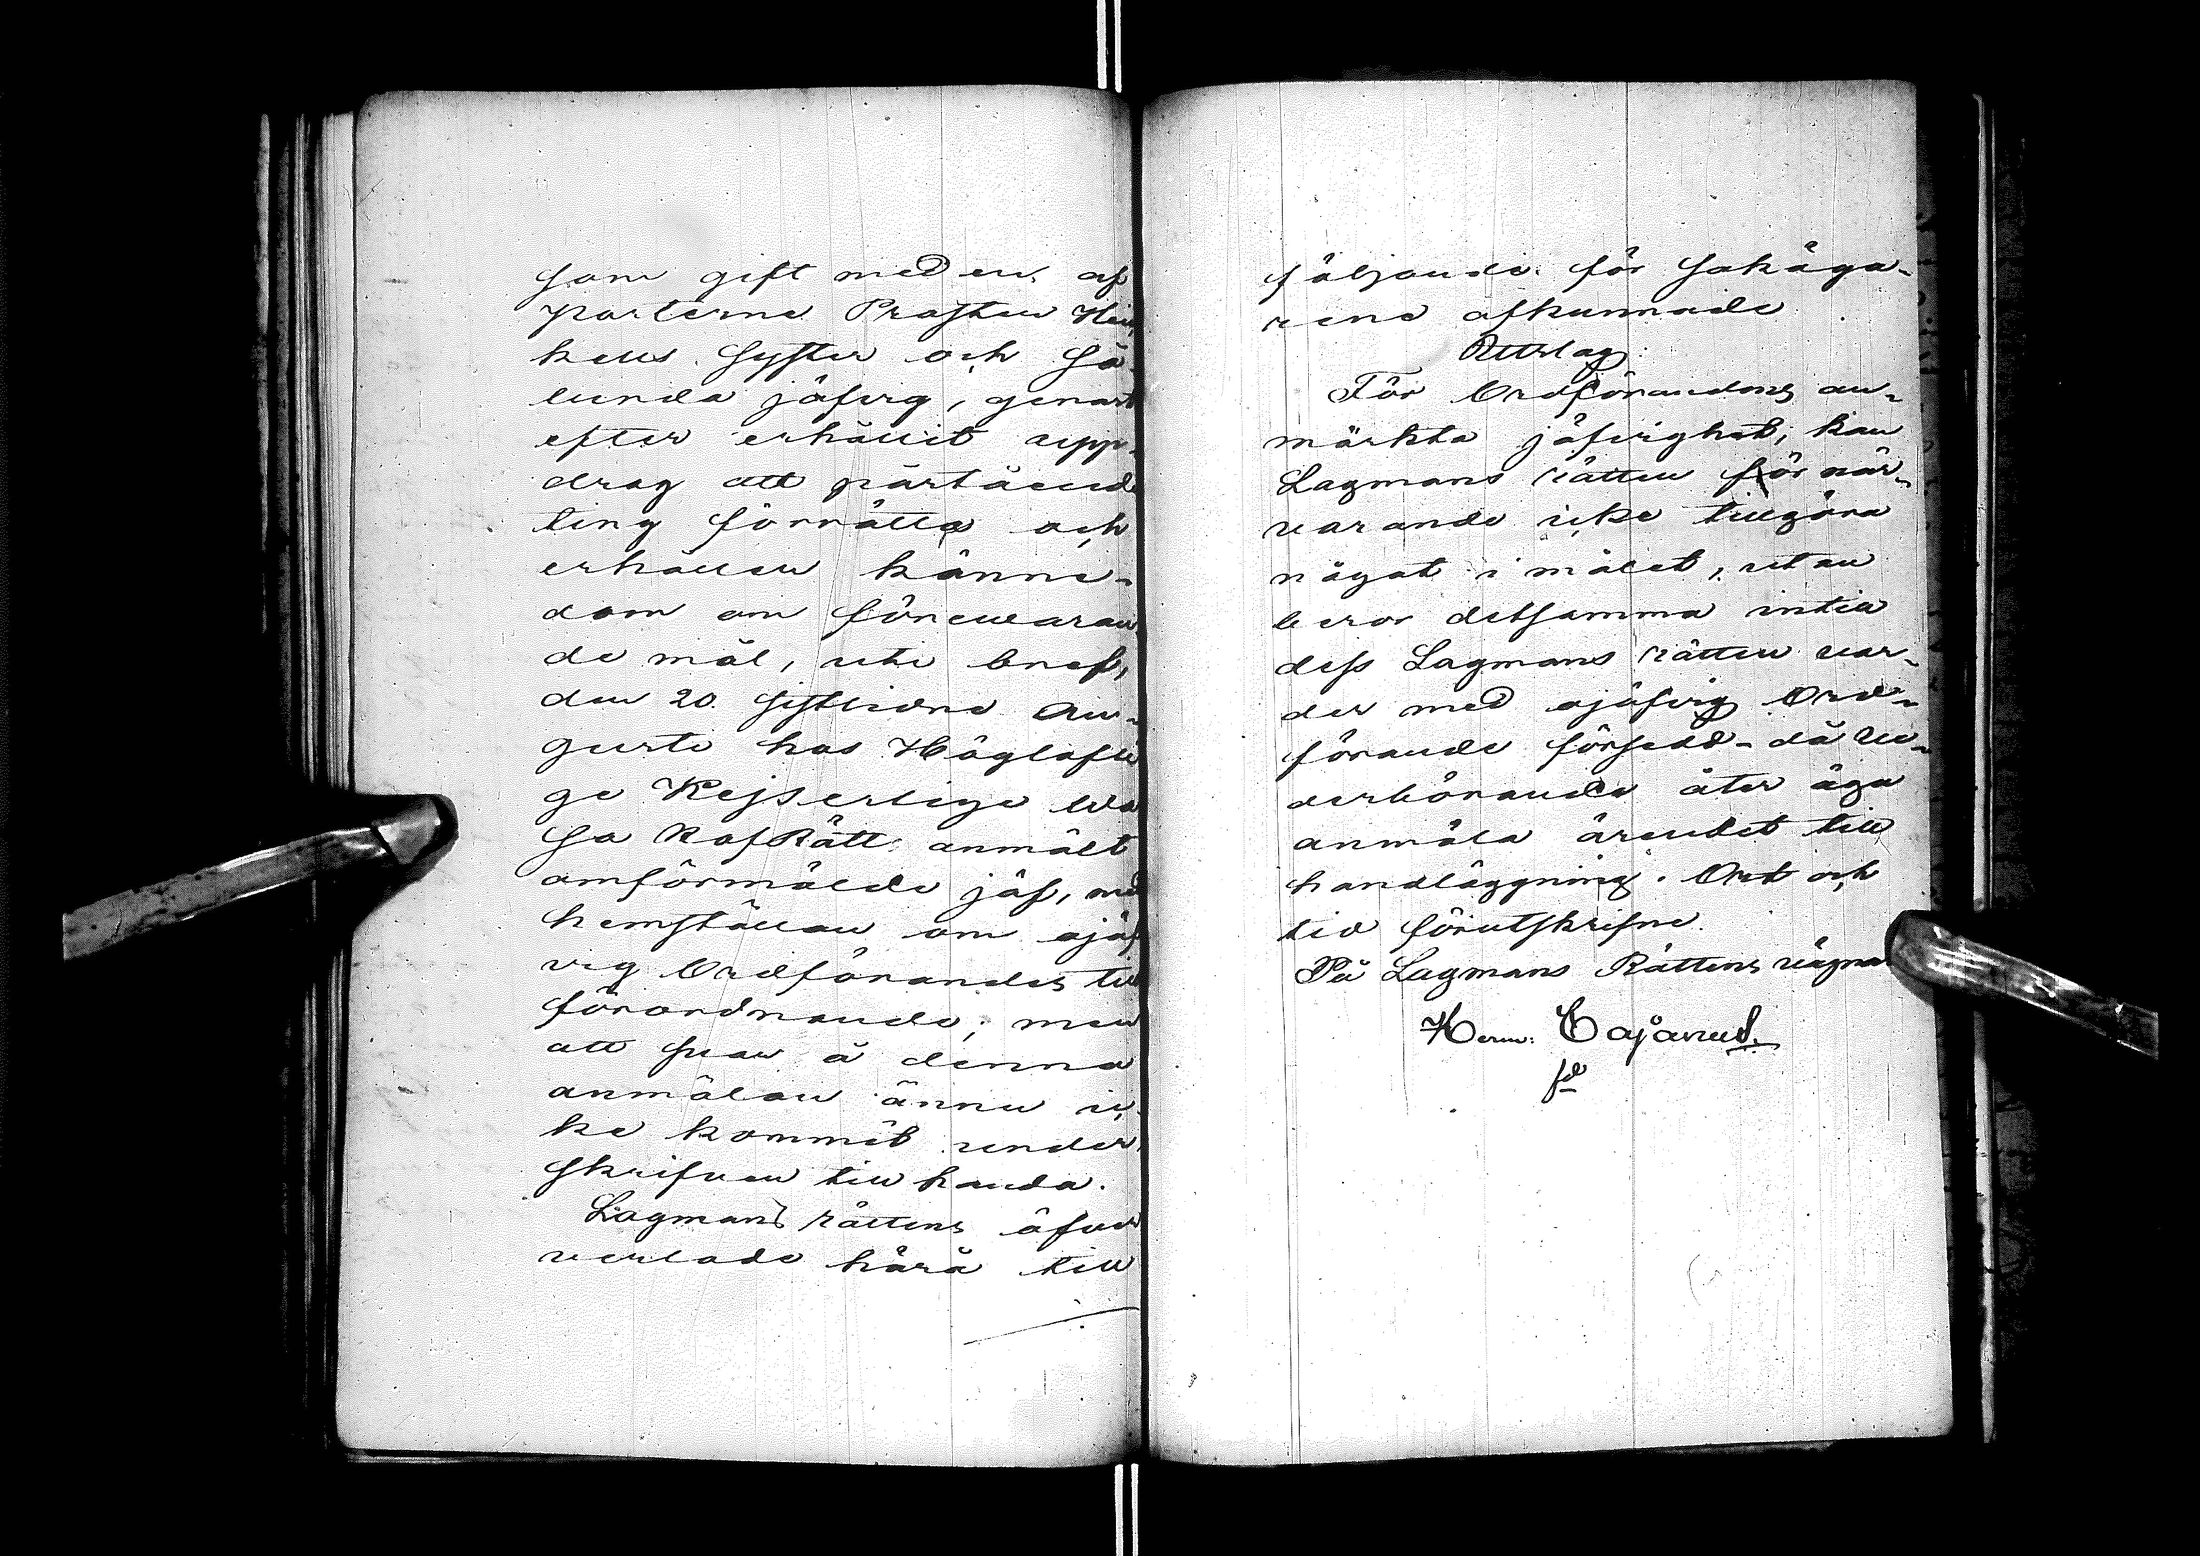 som gift med en af
parterne Prosten Hei-
kels Syster och så-
lunda jäfvig, genast
efter erhållit upp-
drag att påstående
ting förrätta och
erhållen känne-
dom om förevaran-
de mål, uti bref,
den 20 sistlidne Au-
gusti hos Höglofli-
ge Kejserlige Wa-
sa HofRätt anmält
omförmälde jäf, med
hemställan om ojäf-
vig Ordförandes till-
förordnande; men
att svar å denna
anmälan ännu ic-
ke kommit under-
skrifven till handa.
Lagmans rätten öfver-
verlade härå till
följande för sakäga-
rene afkunnade
Utslag:
För Ordförandens an-
märkta jäfvighet, kan
Lagmans rätten för när-
varande icke tillgöra
något i målet, utan
beror detsamma intill
dess Lagmans rätten var-
der med ojäfvig Ord-
förande försedd - då ve-
derbörande åter äga
anmäla ärendet till
handläggning. Ort och
tid förutskrifne.
På Lagmans Rättens vägnar
Herm: Cajanus.